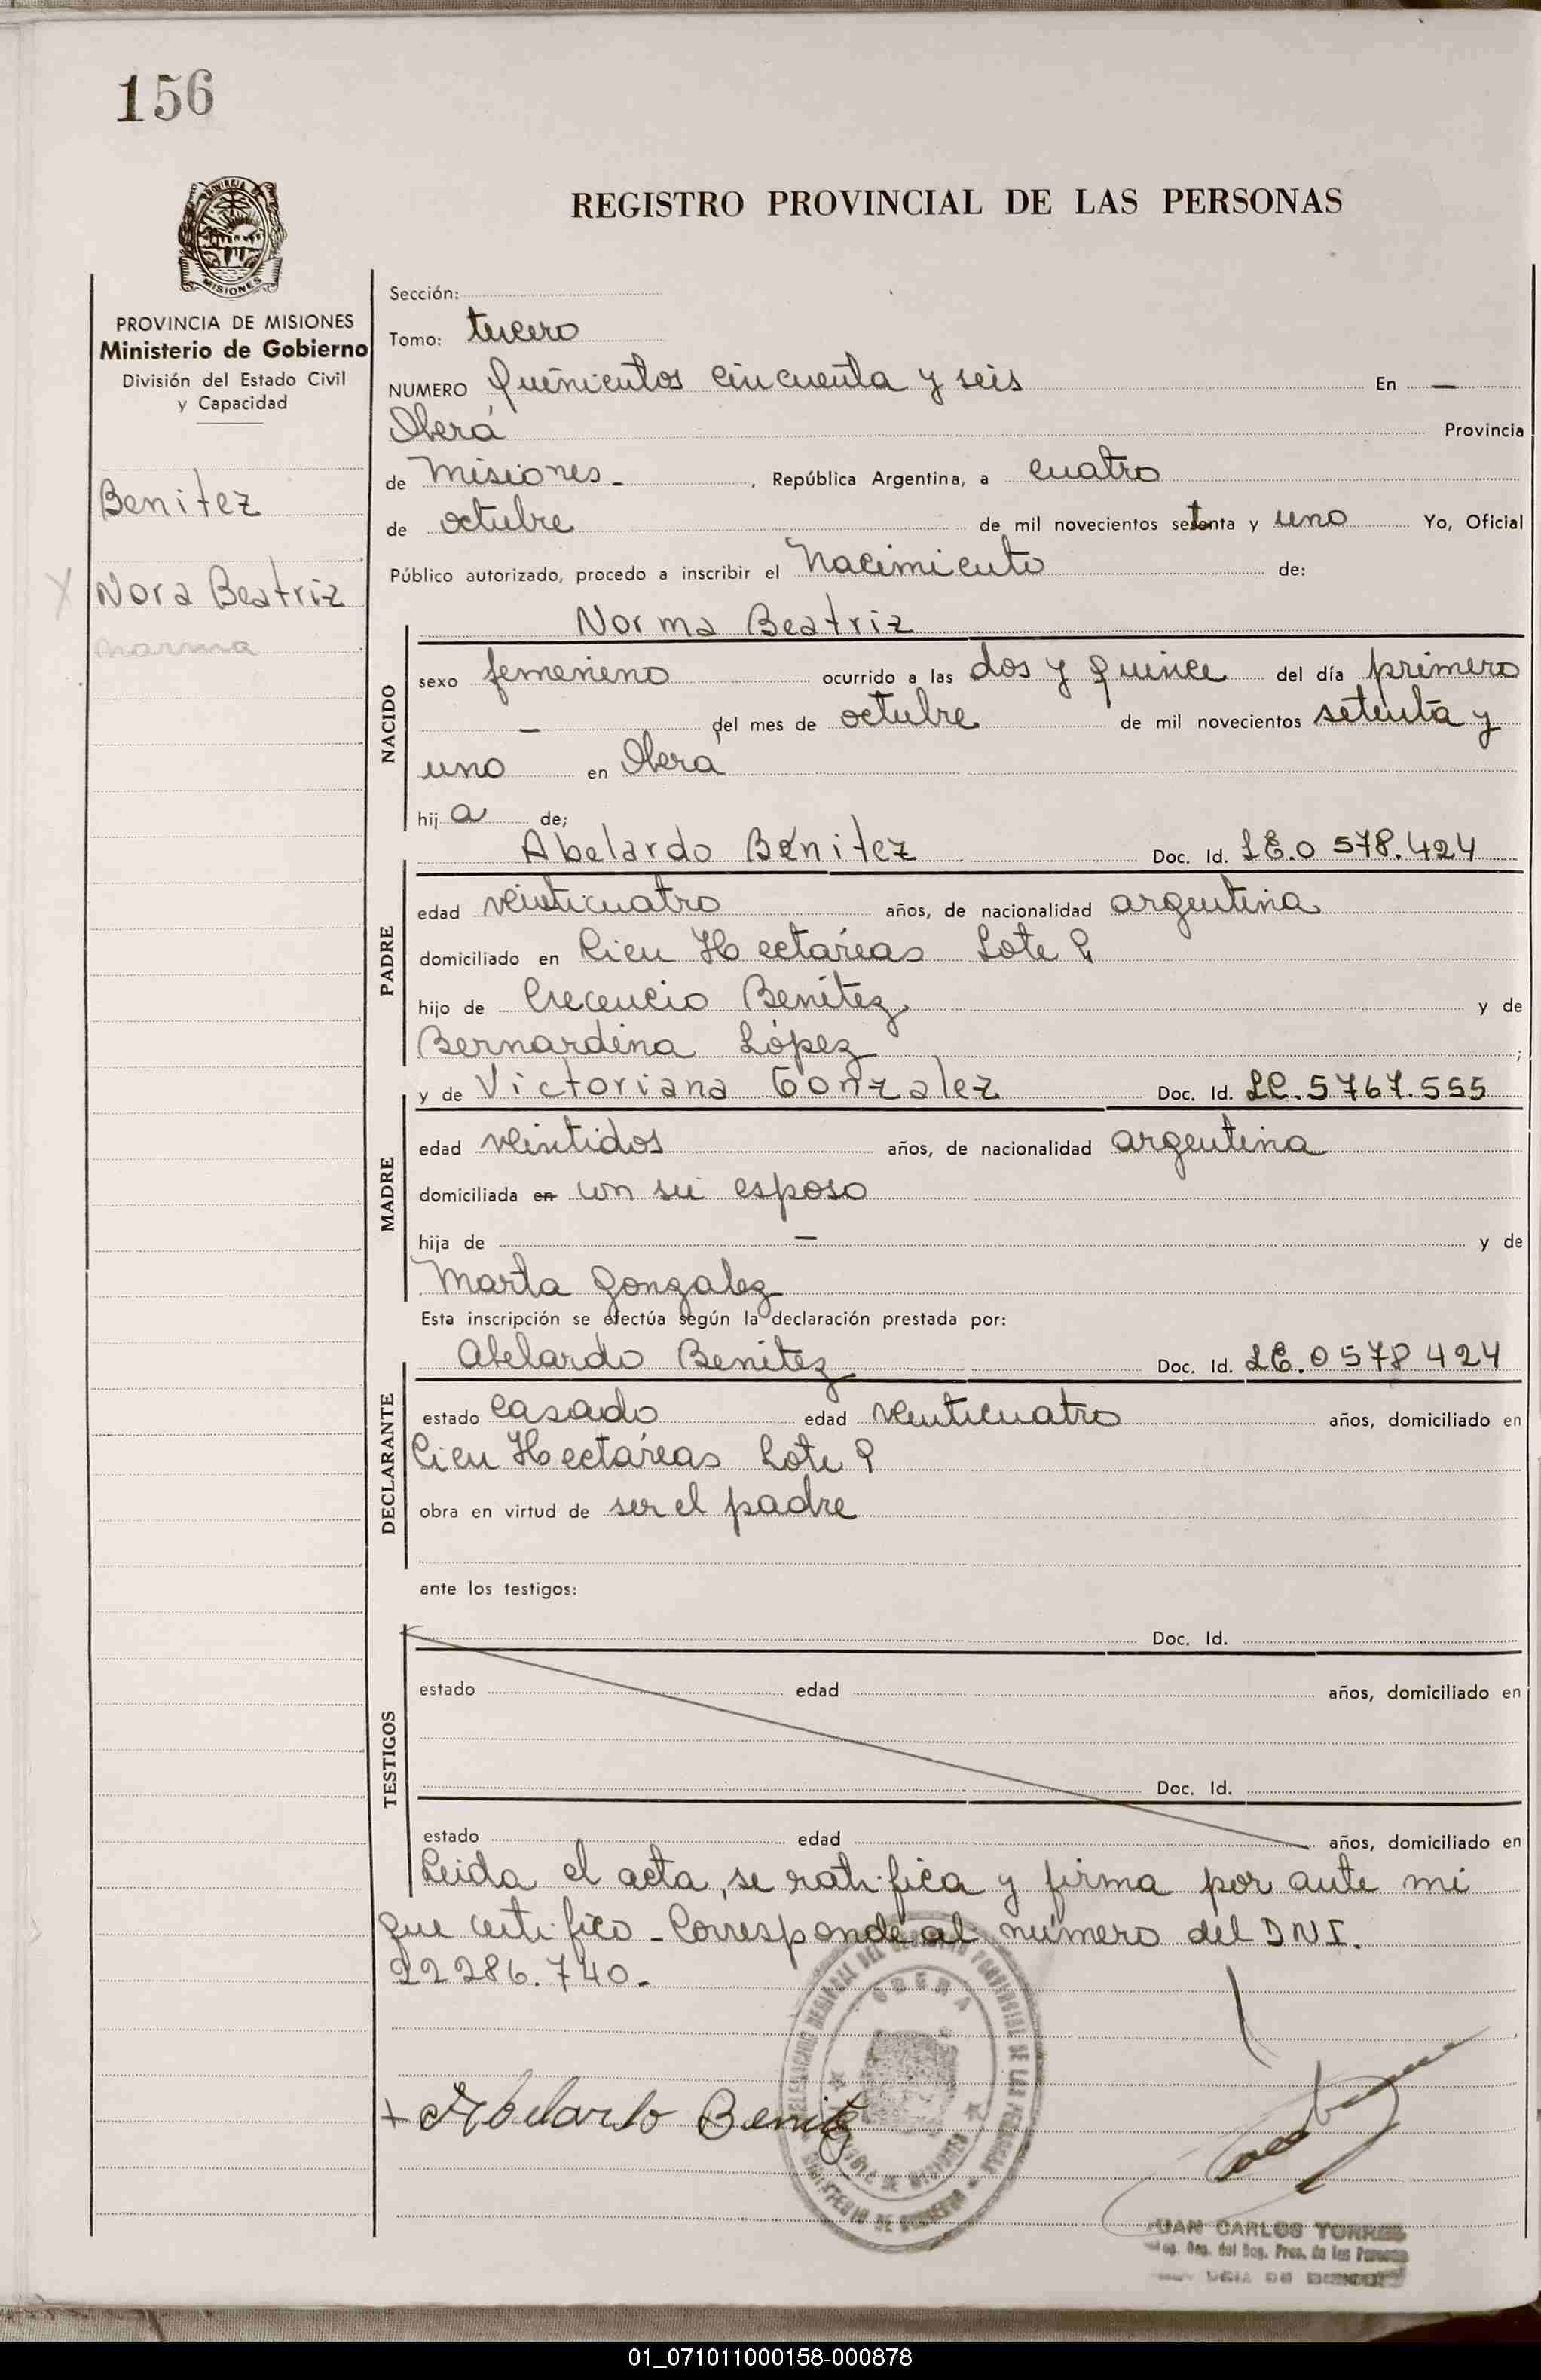 156
REGISTRO PROVINCIAL DE LAS PERSONAS
MISIONES
PROVINCIA DE MISIONES
Ministerio de Gobierno
División del Estado Civil
y Capacidad
Benitez
Nora Beatriz
norma
Sección:
Tomo: tercero
NUMERO quinientos cincuenta y seis En —
Oberá Provincia
de Misiones - , República Argentina, a cuatro
de octubre de mil novecientos setenta y uno Yo, Oficial
Público autorizado, procedo a inscribir el Nacimiento de:
NACIDO
Norma Beatriz
sexo femenino ocurrido a las dos y quince del día primero
— del mes de octubre de mil novecientos setenta y
uno en Oberá
hij a de;
PADRE
Abelardo Benitez Doc. Id. L.E. 0 578.424
edad veinticuatro años, de nacionalidad argentina
domiciliado en Cien Hectáreas Lote
hijo de Crecencio Benítez y de
Bernardina López ;
y de Victoriana Gonzalez Doc. Id. L.C. 5767.555
MADRE
edad veintidos años, de nacionalidad argentina
domiciliada en con su esposo
hija de — y de
Marta Gonzalez
Esta inscripción se efectúa según la declaración prestada por:
DECLARANTE
Abelardo Benítez Doc. Id. L.E. 0578424
estado casado edad veinticuatro años, domiciliado en
Cien Hectáreas Lote
obra en virtud de ser el padre
ante los testigos:
TESTIGOS
Doc. Id.
estado edad años, domiciliado en
Doc. Id.
estado edad años, domiciliado en
Leida el acta, se ratifica y firma por ante mi
que certifico - Corresponde al número del DNI.
22286.740.-
+ Abelardo Benitez
DELEGACION REGIONAL DEL REGISTRO PROVINCIAL DE LAS PERSONAS
OBERA
MINISTERIO DE GOBIERNO
JUAN CARLOS TORRES
Reg. Prov. de las Personas
01_071011000158-000878